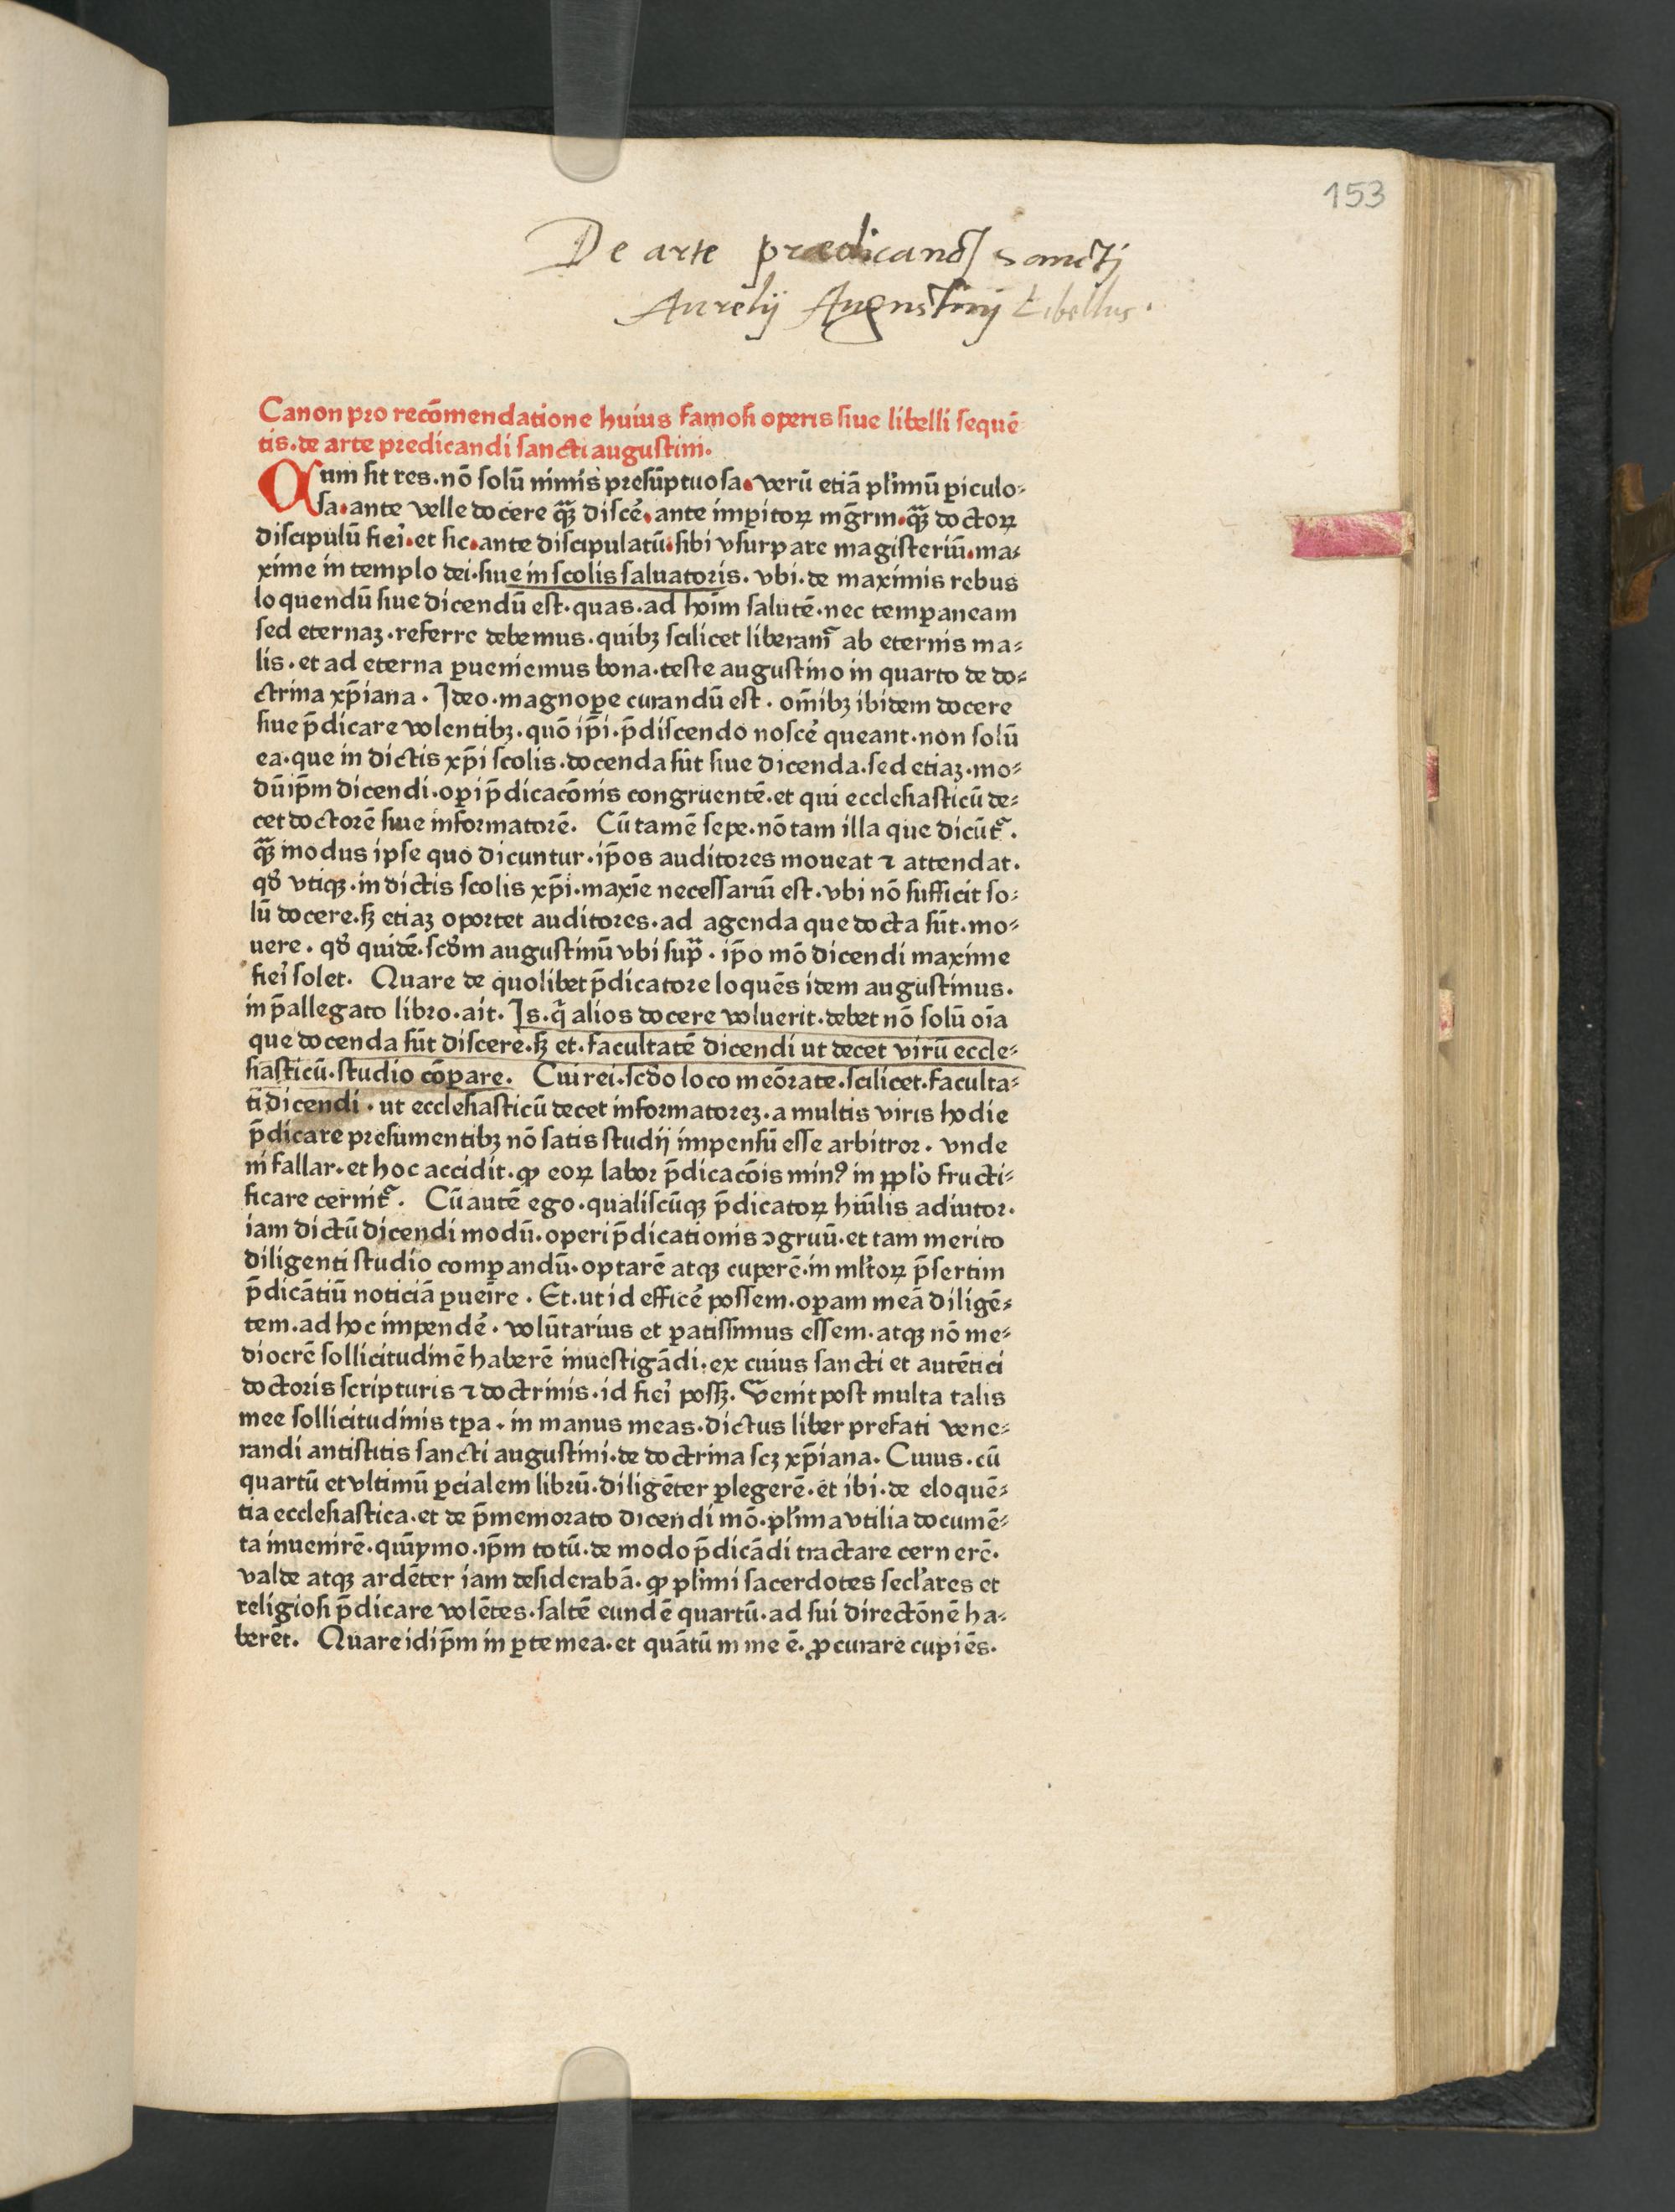 153
De arte prædicandj sanctj
Aurelij Augustinj Libellus.
Canon pro recōmendatione huius famosi operis siue libelli sequē
tis. de arte predicandi sancti augustini.
Cum sit res. nō solū nimis presūptuosa. verū etiā pl'imū ꝑiculo⸗
sa. ante velle docere qͣꝫ discē'. ante imꝑitoꝝ mḡrm. qͣꝫ doctoꝝ
discipulū fiei'. et sic. ante discipulatū. sibi vsurpare magisteriū. ma⸗
xime in templo dei. siue in scolis saluatoris. vbi. de maximis rebus
loquendū siue dicendū est. quas. ad hoīm salutē. nec temꝑaneam
sed eternaꝫ. referre debemus. quibꝫ scilicet liberamᷓ ab eternis ma⸗
lis. et ad eterna ꝑueniemus bona. teste augustino in quarto de do⸗
ctrina xp̄iana. Ideo. magnoꝑe curandū est. om̄ibꝫ ibidem docere
siue p̄dicare volentibꝫ. quō ip̄i. p̄discendo noscē' queant. non solū
ea. que in dictis xp̄i scolis. docenda sūt siue dicenda. sed etiaꝫ. mo⸗
dū ip̄m dicendi. oꝑi p̄dicacōnis congruentē. et qui ecclesiasticū de⸗
cet doctorē siue informatorē. Cū tamē sepe. nō tam illa que dicūtᷓ.
qͣꝫ modus ipse quo dicuntur. ip̄os auditores moueat ⁊ attendat.
qđ vtiqꝫ. in dictis scolis xp̄i. maxīe necessariū est. vbi nō sufficit so⸗
lū docere. sꝫ etiaꝫ oportet auditores. ad agenda que docta sūt. mo⸗
uere. qđ quidē. scđm augustinū vbi supͣ. ip̄o mō dicendi maxime
fiei' solet. Quare de quolibet p̄dicatore loquēs idem augustinus.
in p̄allegato libro. ait. Is. qͥ alios docere voluerit. debet nō solū oīa
que docenda sūt discere. sꝫ et. facultatē dicendi ut decet virū eccle⸗
siasticū. studio cōꝑare. Cui rei. scđo loco meōrate. scilicet. faculta⸗
ti dicendi. ut ecclesiasticū decet informatoreꝫ. a multis viris hodie
p̄dicare presumentibꝫ nō satis studij impensū esse arbitror. vnde
ni fallar. et hoc accidit. ꝙ eoꝝ labor p̄dicacōis minꝰ in ppl'o fructi⸗
ficare cernitᷓ. Cū autē ego. qualiscūqꝫ p̄dicatoꝝ hūilis adiutor.
iam dictū dicendi modū. operi p̄dicationis ↄgruū. et tam merito
diligenti studio comꝑandū. optarē atqꝫ cuperē. in ml'toꝝ p̄sertim
p̄dicātiū noticiā ꝑueīre. Et. ut id efficē' possem. oꝑam meā diligē⸗
tem. ad hoc impendē'. volūtarius et ꝑatissimus essem. atqꝫ nō me⸗
diocrē sollicitudinē haberē inuestigādi. ex cuius sancti et autētici
doctoris scripturis ⁊ doctrinis. id fiei' possꝫ. Venit post multa talis
mee sollicitudinis tꝑa. in manus meas. dictus liber prefati vene⸗
randi antistitis sancti augustini. de doctrina scꝫ xp̄iana. Cuius. cū
quartū et vltimū ꝑcialem librū. diligēter ꝑlegerē. et ibi. de eloquē⸗
tia ecclesiastica. et de p̄memorato dicendi mō. pl'ima vtilia documē⸗
ta inuenirē. quīymo. ip̄m totū. de modo p̄dicādi tractare cernerē.
valde atqꝫ ardēter iam desiderabā. ꝙ pl'imi sacerdotes secl'ares et
religiosi p̄dicare volētes. saltē eundē quartū. ad sui directōnē ha⸗
berēt. Quare id ip̄m in ꝑte mea. et quātū in me ē. ꝓcurare cupiēs.